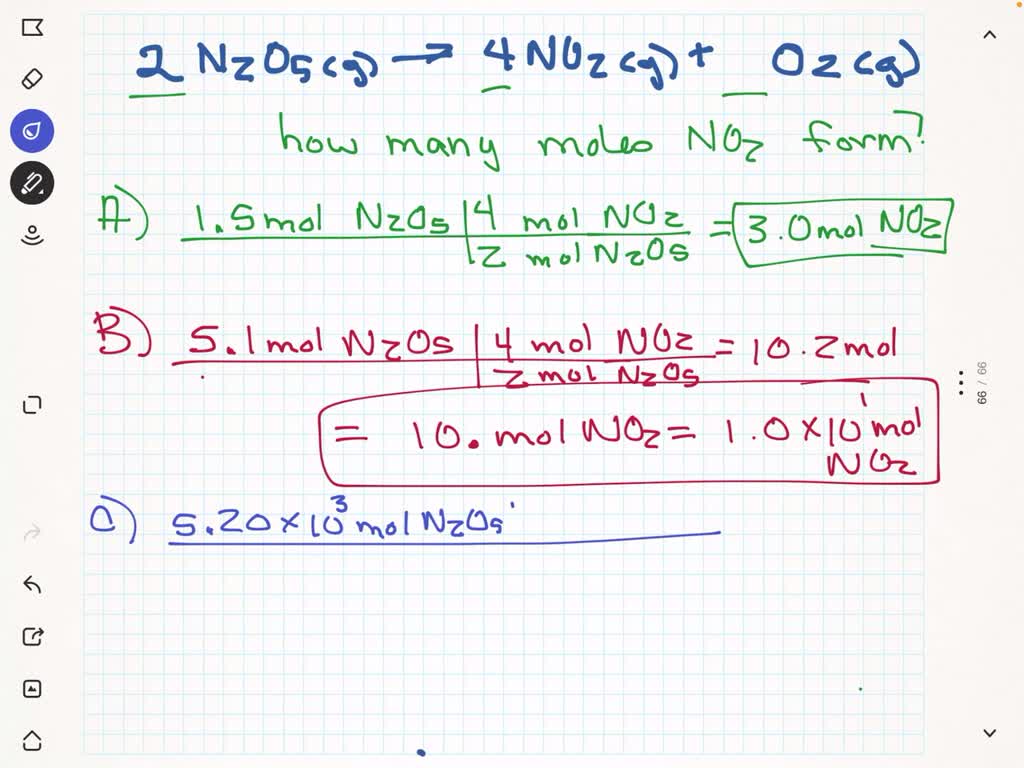 2 N₂O₅(g) → 4 NO₂(g) + O₂(g)
how many moles NO₂ form?
A) 1.5 mol N₂O₅ | 4 mol NO₂ = 3.0 mol NO₂
2 mol N₂O₅
B) 5.1 mol N₂O₅ | 4 mol NO₂ = 10.2 mol
2 mol N₂O₅
= 10. mol NO₂ = 1.0 × 10¹ mol
NO₂
C) 5.20 × 10³ mol N₂O₅
66 / 66